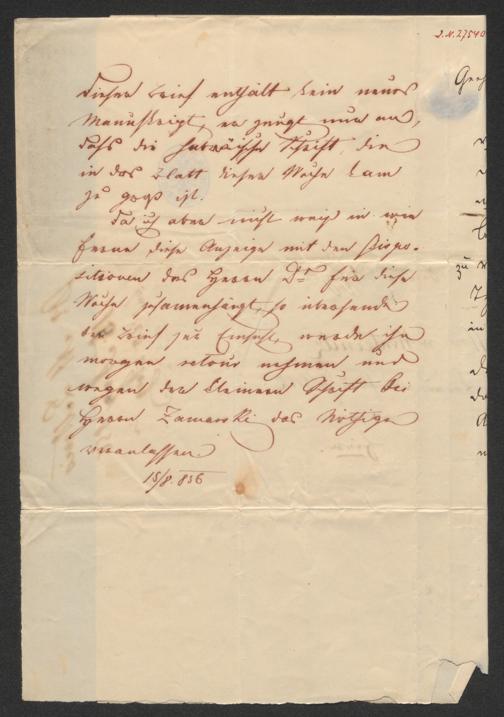 J.N. 27540
Dieser Brief enthält kein neues
Manuskript, er zeigt nur an,
daß die hebräische Schrift, die
in das Blatt dieser Woche kam
zu groß ist.
Da ich aber nicht weiß in wie
ferne diese Anzeige mit den Dispo-
sitionen des Herrn Dr. für diese
Woche zusammenhängt, so übersende
den Brief zur Einsicht, werde ihn
morgen retour nehmen und
wegen der kleinern Schrift bei
Herrn Zamarski das Nöthige
veranlassen.
15/8. 856
Geeh
zu
in